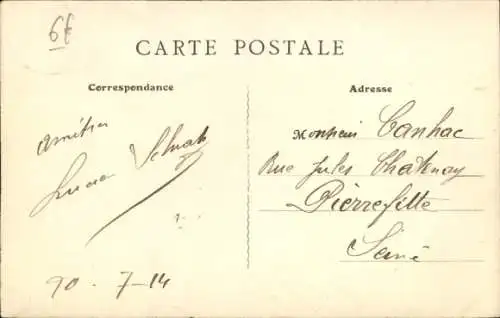 6f
CARTE POSTALE
Correspondance
Adresse
Amitiés
Lucien
Monsieur Canhac
Rue Jules Chatenay
Pierrefitte
Seine
90 - 7-14